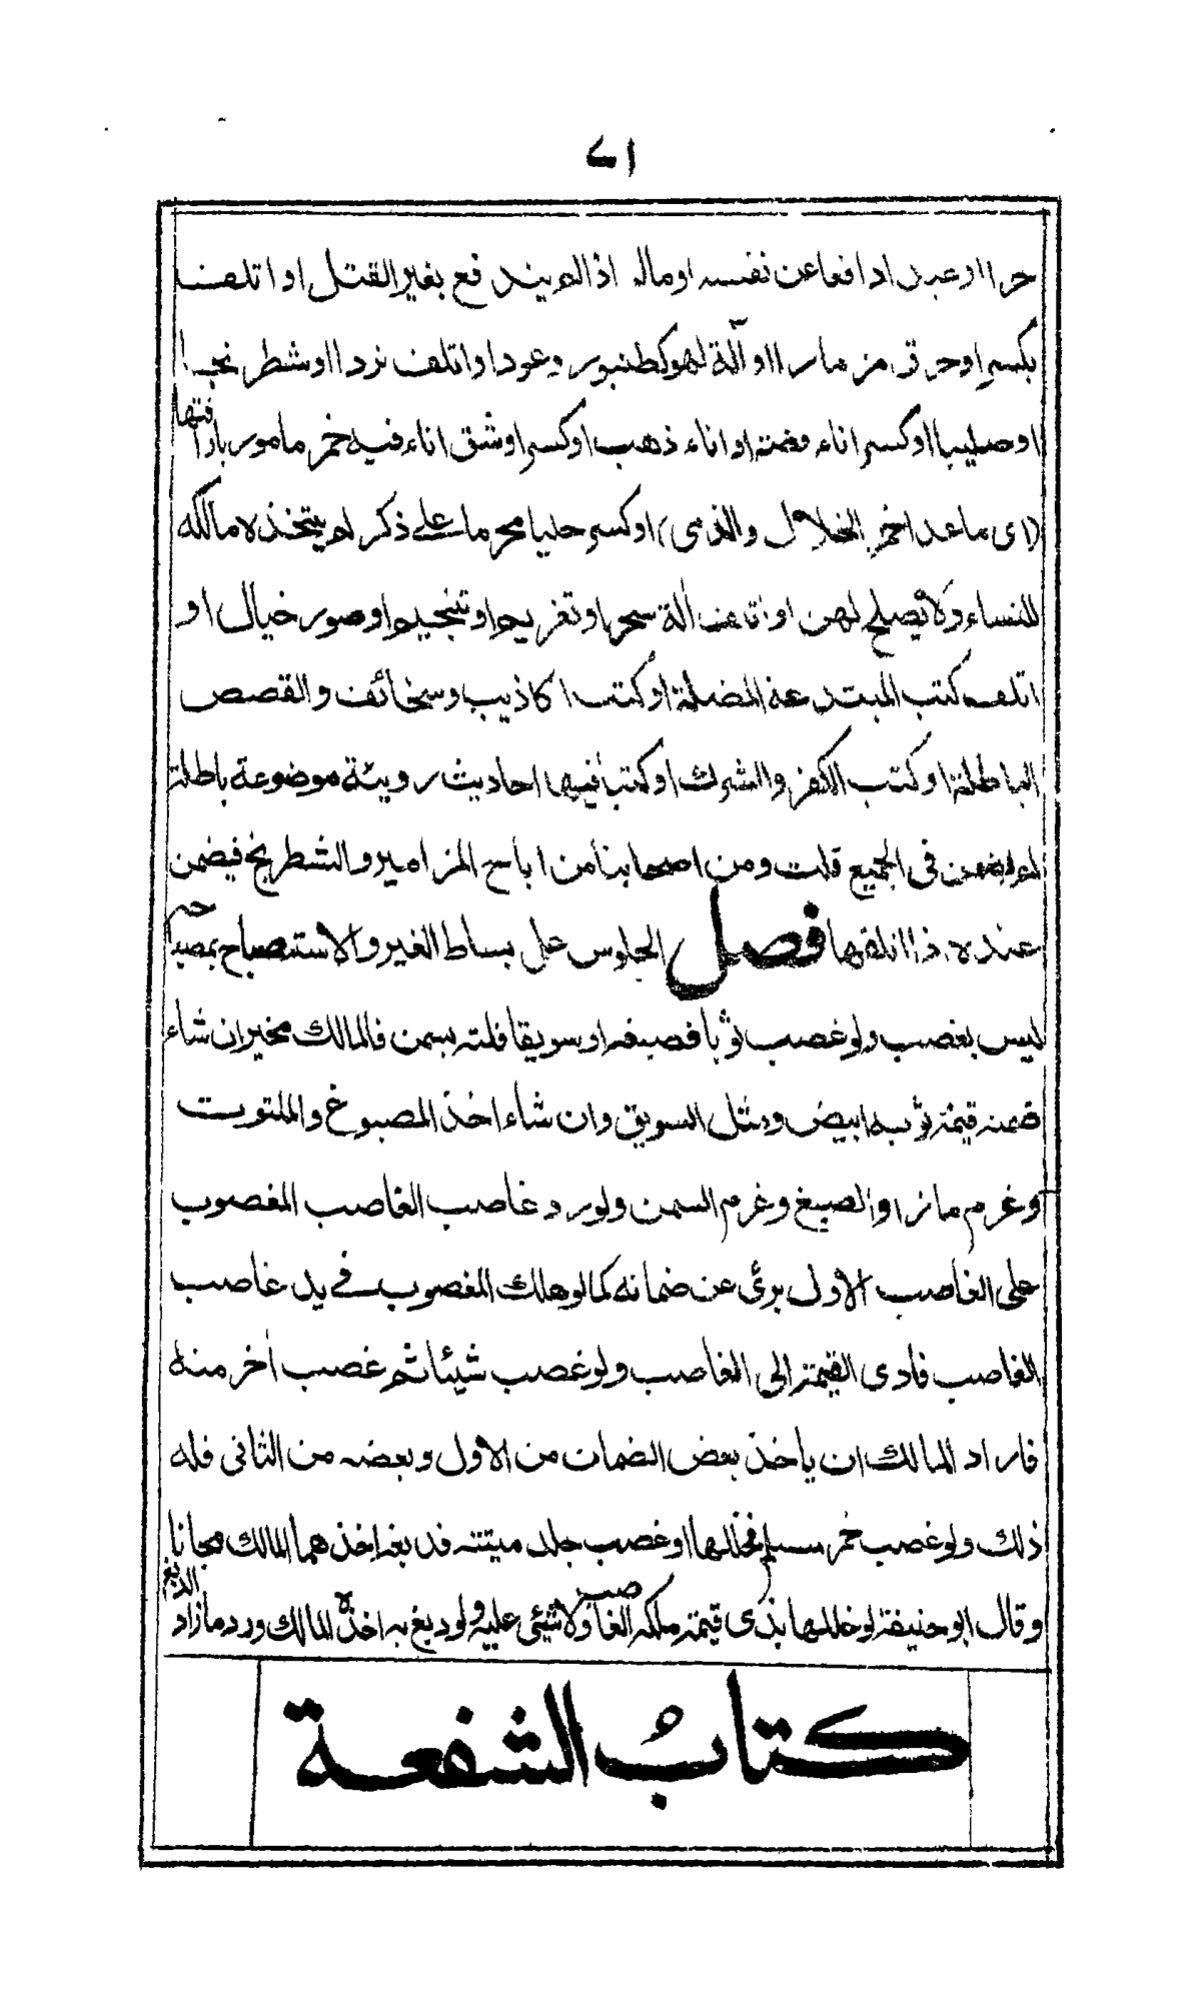 ٧١
حرا او عبدا دافعا عن نفسه او ماله اذ الم يند فع بغير القتل او اتلف
بكسر او حرق مزمارا او آلة لهو كطنبور وعودا واتلف نردا او شطرنجا
او صليبا او كسر اناء فضة او اناء ذهب او كسر او شق اناء فيه خمر مامور باراقتها
(اى ما عدا خمر الخلال والذمى) او كسر حليا محرما على ذكر لم يتخذه مالكه
للنساء ولا يصلح لهن او اتلف آلة سحر او تغزيم او تنجيم او صور خيال او
اتلف كتب المبتدعة المضلة او كتب اكاذيب وسخائف والقصص
الباطلة او كتب الكفر والشرك او كتب فيها احاديث روية موضوعة باطلة
لم يضمن فى الجميع قلت ومن اصحابنا من اباح المزامير والشطرنج فيضمن
عنده اذا اتلفها فصل الجلوس على بساط الغير والاستصباح بمصباحه
ليس بغصب ولو غصب ثوبا فصبغه او سويقا فلته بسمن فالمالك مخير ان شاء
ضمنه قيمة ثوب ابيض ومثل السويق وان شاء اخذ المصبوغ والملتوت
وغرم ما زاد الصبغ وغرم السمن ولو رد غاصب الغاصب المغصوب
على الغاصب الاول برئ عن ضمانه كما لو هلك المغصوب فى يد غاصب
الغاصب فادى القيمة الى الغاصب ولو غصب شيئا ثم غصب آخر منه
فاراد المالك ان ياخذ بعض الضمان من الاول وبعضه من الثانى فله
ذلك ولو غصب خمر مسلم فخللها او غصب جلد ميتة فدبغه اخذهما المالك مجانا
وقال ابو حنيفة لو خللها بذى قيمة ملكه الغاصب ولا شئى عليه ولو دبغ به اخذه المالك ورد ما زاد الدبغ
كتاب الشفعة